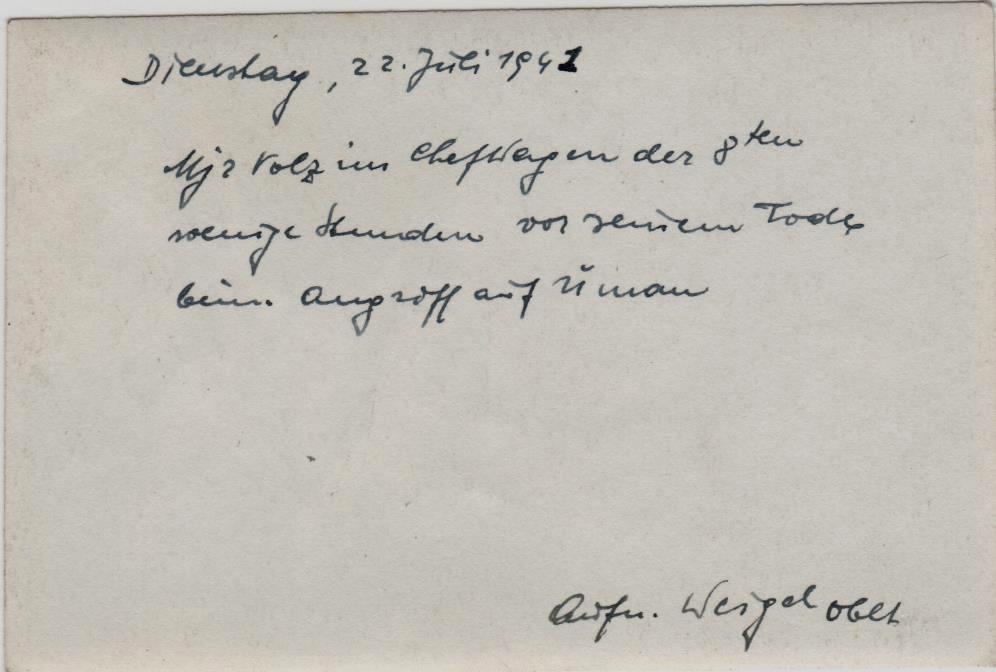 Dienstag, 22. Juli 1941
Mjr Volz im Chefwagen der 8ten
wenige Stunden vor seinem Tode
beim Angriff auf Uman
Aufn. Weigel Oblt